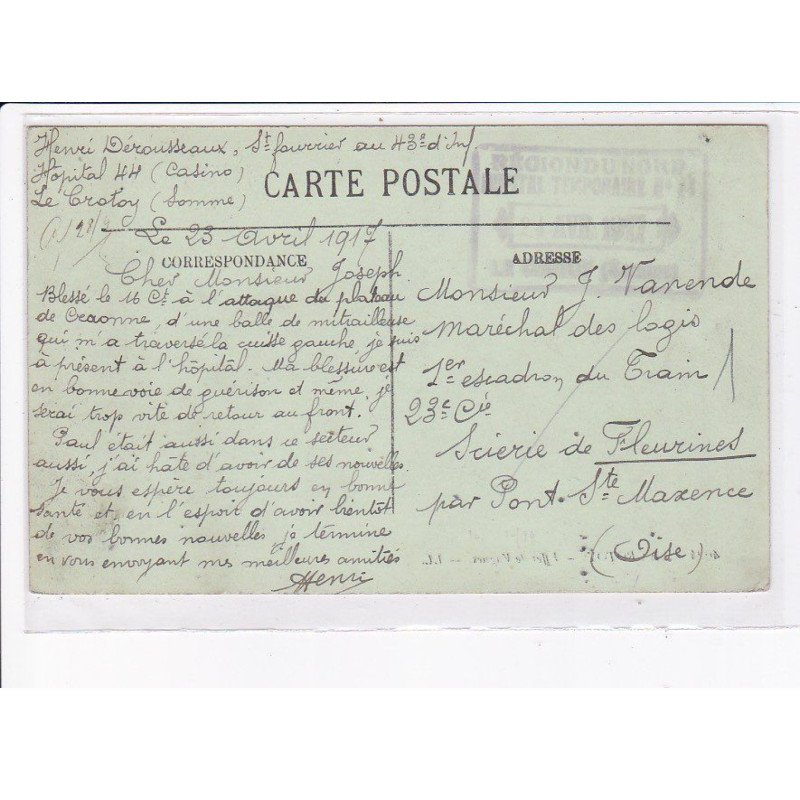 Henri Dérousseaux, St fourrier au 43e d'Inf
Hôpital 44 (Casino)
Le Crotoy (Somme)
CARTE POSTALE
RÉGION DU NORD
HÔPITAL TEMPORAIRE N°
Le 23 avril 1917
CORRESPONDANCE
Cher Monsieur Joseph
Blessé le 16 Ct à l'attaque du plateau
de Craonne, d'une balle de mitrailleuse
qui m'a traversé la cuisse gauche, je suis
à présent à l'hôpital. Ma blessure est
en bonne voie de guérison et même, je
serai trop vite de retour au front.
Paul était aussi dans ce secteur
aussi, j'ai hâte d'avoir de ses nouvelles.
Je vous espère toujours en bonne
santé et, en l'espoir d'avoir bientôt
de vos bonnes nouvelles, je termine
en vous envoyant mes meilleures amitiés
Henri
ADRESSE
Monsieur J. Vanende
Maréchal des logis
1er escadron du Train
23e Cie
Scierie de Fleurines
par Pont-Ste Maxence
(Oise)